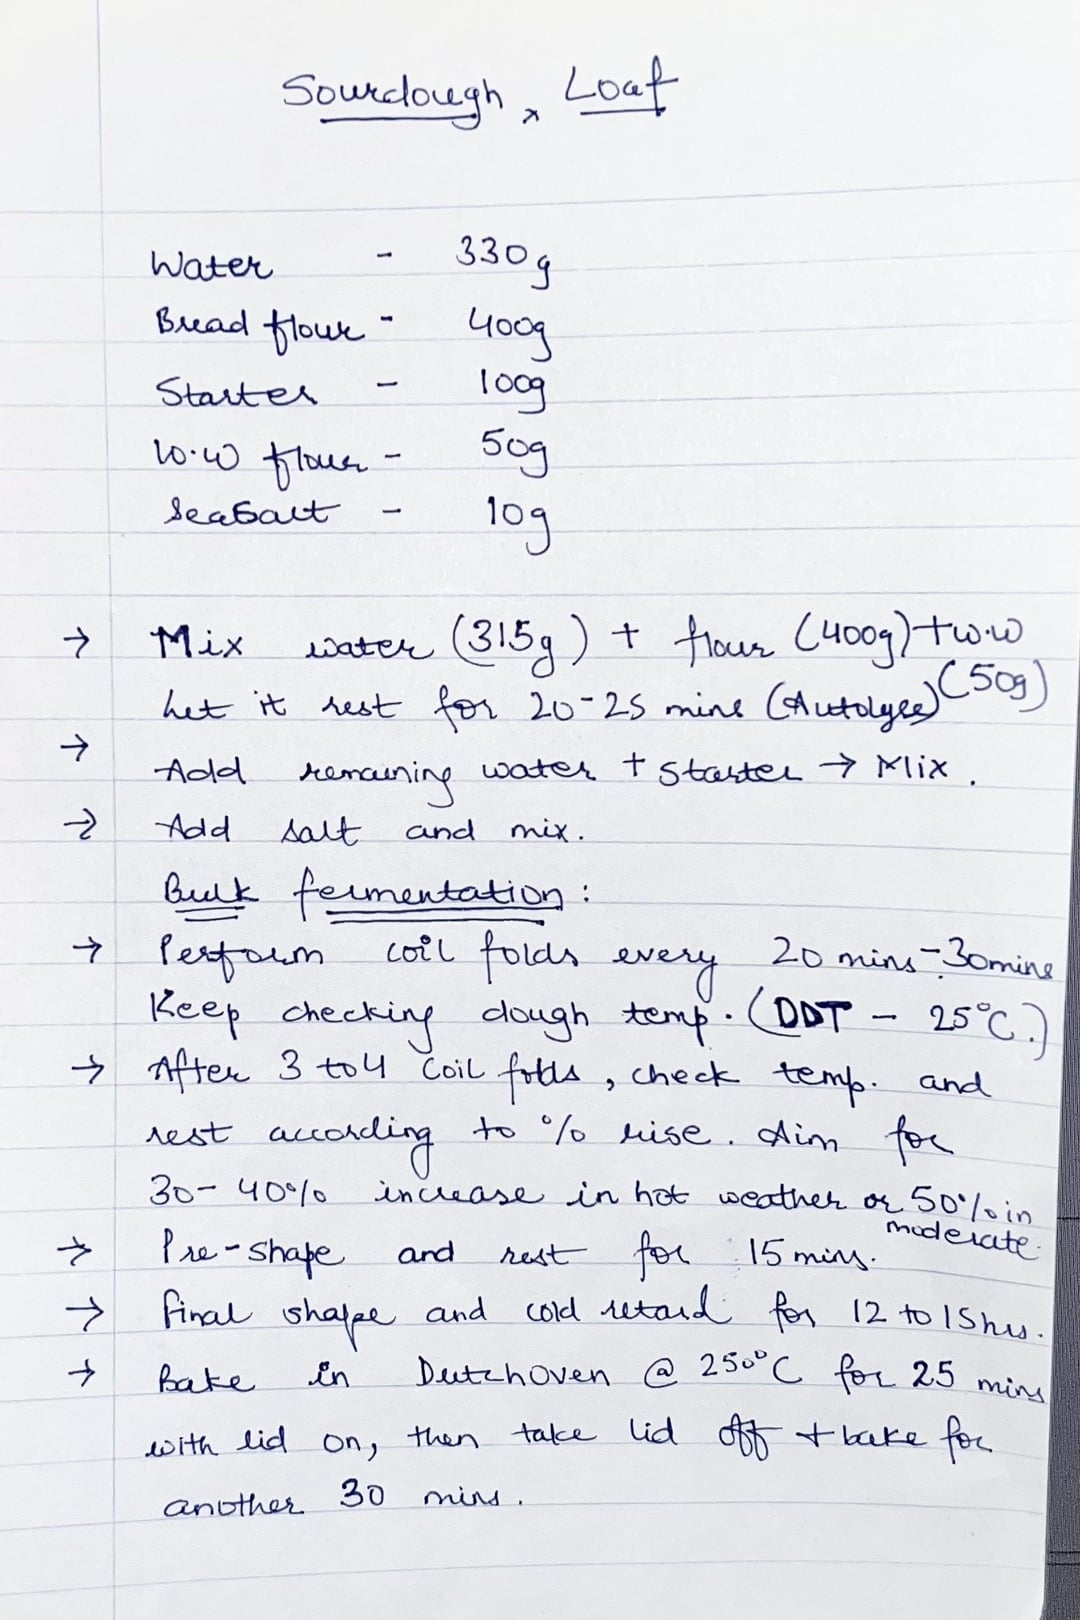 Sourdough x Loaf
Water - 330g
Bread flour - 400g
Starter - 100g
W.W flour - 50g
SeaSalt - 10g
→ Mix water (315g) + flour (400g) + w.w (50g)
Let it rest for 20-25 mins (Autolyse)
→ Add remaining water + starter → Mix.
→ Add salt and mix.
Bulk fermentation:
→ Perform coil folds every 20 mins-30mins
Keep checking dough temp. (DDT - 25°C.)
→ After 3 to 4 coil folds, check temp. and
rest according to % rise. Aim for
30-40% increase in hot weather or 50% in
moderate.
→ Pre-shape and rest for 15 mins.
→ Final shape and cold retard for 12 to 15hrs.
→ Bake in DutchOven @ 250°C for 25 mins
with lid on, then take lid off + bake for
another 30 mins.